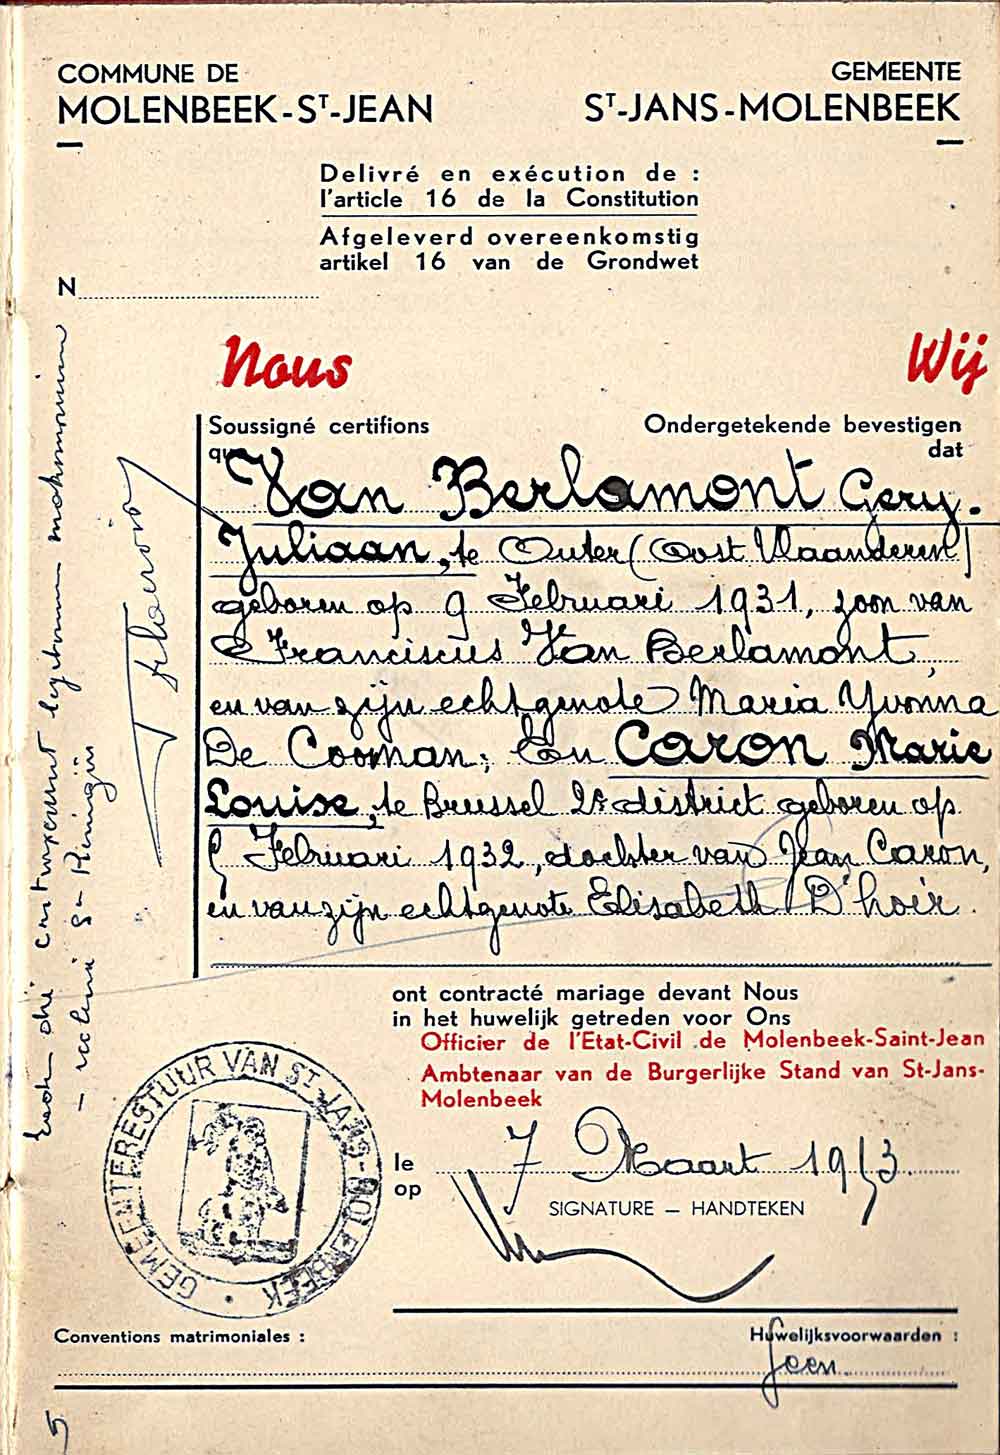 COMMUNE DE
MOLENBEEK-Sᵀ-JEAN
GEMEENTE
Sᵀ-JANS-MOLENBEEK
Delivré en exécution de :
l'article 16 de la Constitution
Afgeleverd overeenkomstig
artikel 16 van de Grondwet
N
Nous
Wij
Soussigné certifions
que
Ondergetekende bevestigen
dat
Van Berlamont Gery.
Juliaan, te Outer (Oost Vlaanderen)
geboren op 9 Februari 1931, zoon van
Franciscus Van Berlamont,
en van zijn echtgenote Maria Yvonna
De Cooman; En Caron Marie
Louise, te Brussel 2e district geboren op
Februari 1932, dochter van Jean Caron,
en van zijn echtgenote Elisabeth D'hoir.
ont contracté mariage devant Nous
in het huwelijk getreden voor Ons
Officier de l'Etat-Civil de Molenbeek-Saint-Jean
Ambtenaar van de Burgerlijke Stand van St-Jans-
Molenbeek
le
op
7 Maart 1953.
SIGNATURE — HANDTEKEN
GEMEENTEBESTUUR VAN ST-JANS-MOLENBEEK
Conventions matrimoniales :
Huwelijksvoorwaarden :
Geen.
Eadem die contraxerunt legitimum matrimonium
5